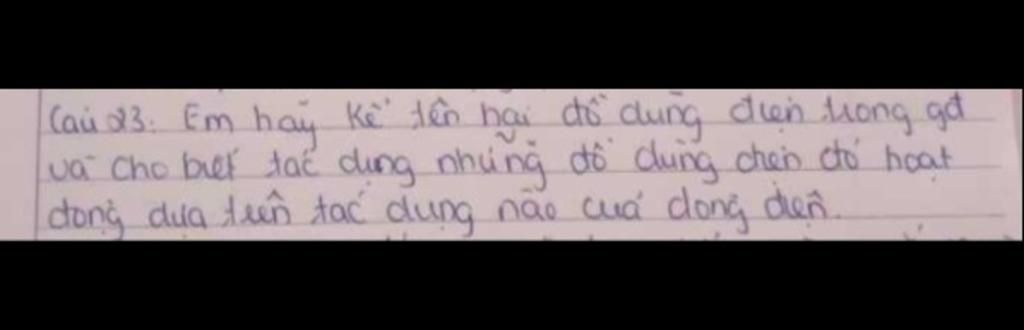 Câu 23: Em hãy kể tên hai đồ dùng điện trong gđ
và cho biết tác dụng những đồ dùng điện đó hoạt
động dựa trên tác dụng nào của dòng điện.